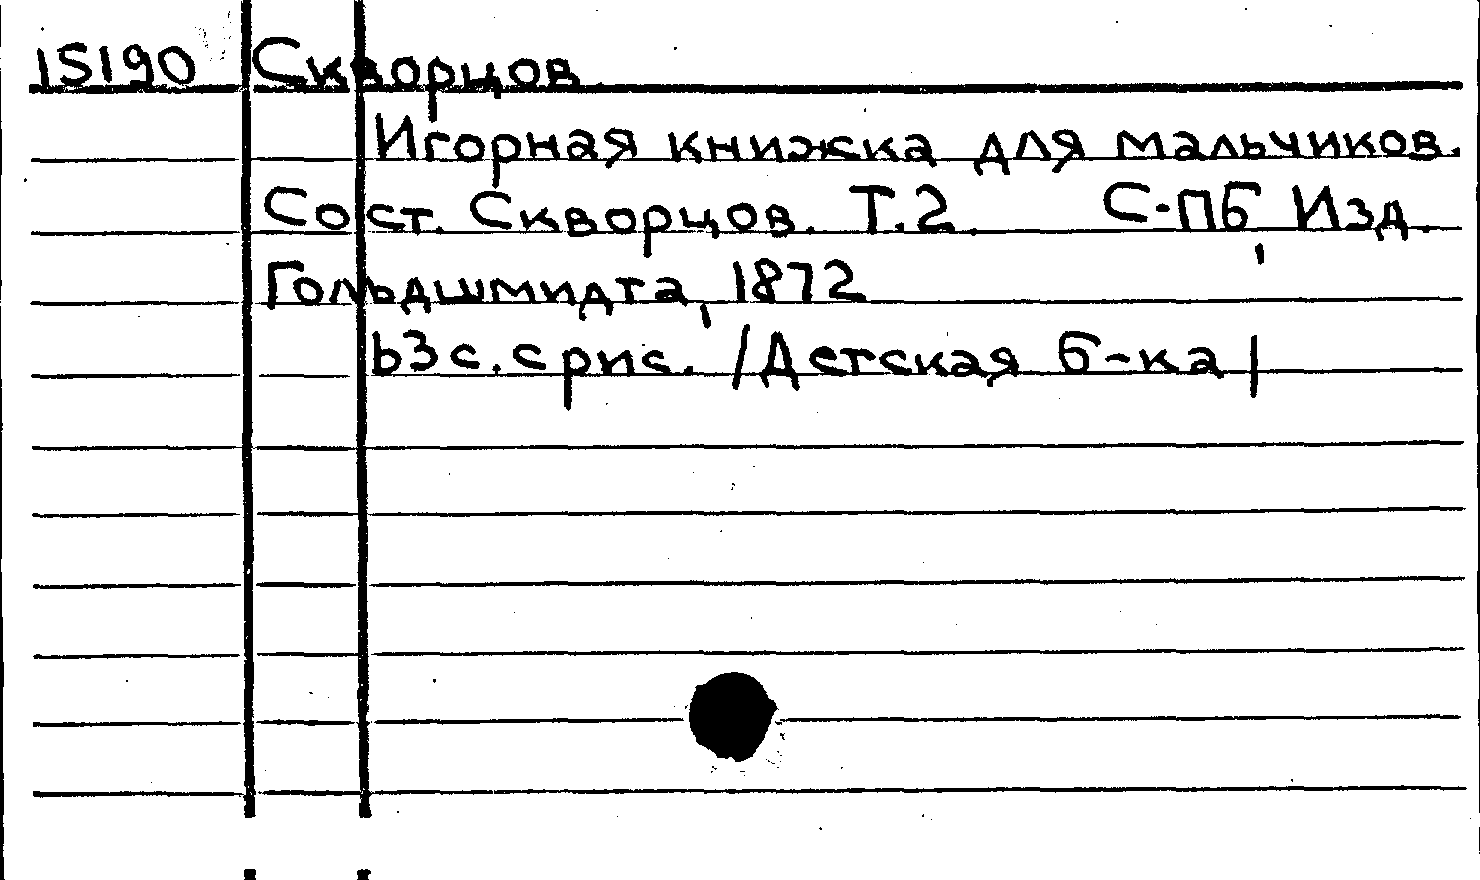 15190 Скворцов
Игорная книжка для мальчиков.
Сост. Скворцов. Т.2. С-ПБ, Изд.
Гольдшмидта, 1872
63 с. с рис. /Детская б-ка/